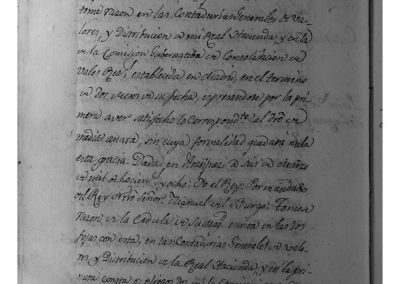 tome razon en las Contadurias Generales de Va-
lores, y Distribucion de mi Real Hacienda, y en la
de la Comision Gubernativa de Consolidacion de
Vales Reales, establecida en Madrid, en el termino
de dos meses de su fecha, expresandose por la pri-
mera aver satisfecho lo correspondte. al dro. de
media anata, sin cuya formalidad quedará nula
esta gracia. Dada en Aranjuez a seis de
de mil ochocientos y ocho: Yo el Rey: Por mandado
del Rey Ntro Señor, Manuel del Burgo: Tomose
razon de la Cedula de S. Mag. escrita en las dos
fojas con esta, en las Contadurias Generales de Valo-
res, y Distribucion de la Real Hacienda, y en la pri-
mera consta a pliegos de la Comision